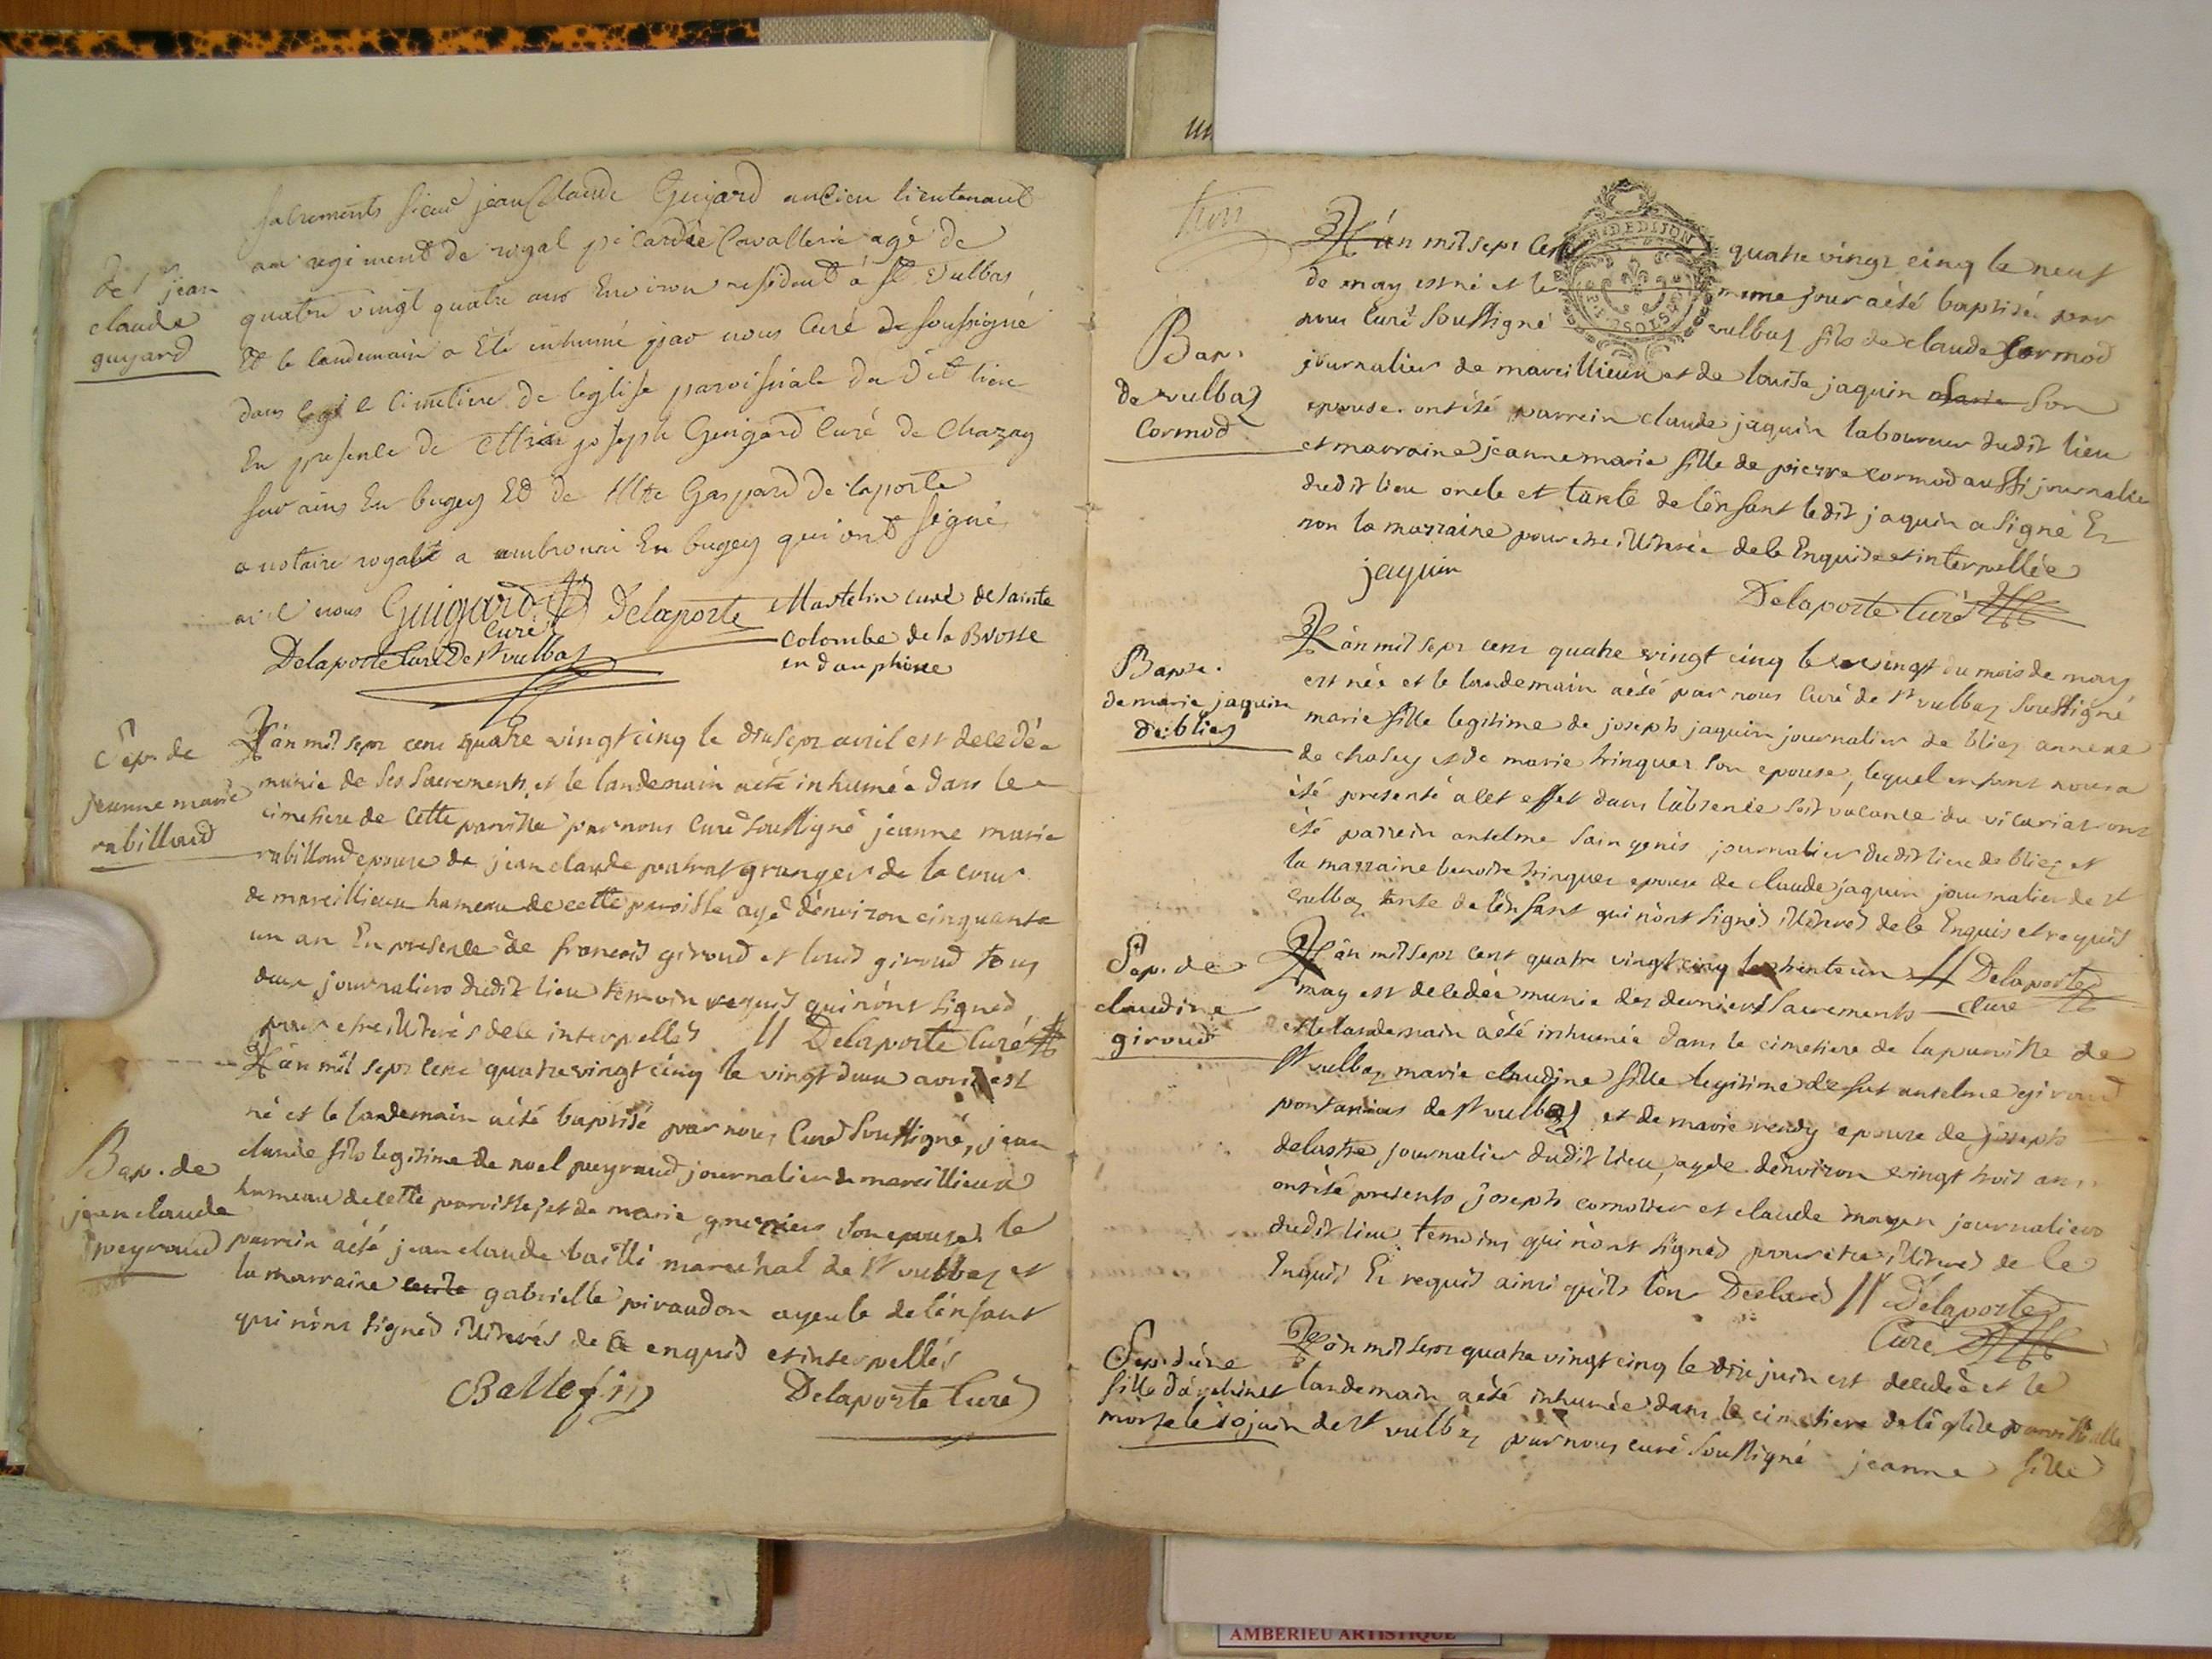 sacrements sieur jean Claude Guigard ancien lieutenant
au regiment de royal picardie Cavallerie agé de
de Sr jean
claude
guyard
quatre vingt quatre ans Environ residant à St Vulbas
Et le landemain a Eté inhumé par nous Curé de soussigné
dans le cimetiere de leglise paroissiale du dit lieu
En presence de joseph Guigard Curé de Chazay
sur ains En bugey Et de Gaspard de laporte
notaire royal a ambronai En bugey qui ont signé
nous Guigard Curé Delaporte Martelin curé de sainte
colombe de la Brosse
en dauphine
Delaporte Curé De St vulbas
Sep. de
jeanne marie
rabilloud
L'an mil sept cens quatre vingt cinq le diusept avril est decedée
munie de ses sacrements et le landemain a été inhumée dans le
cimetiere de cette paroisse par nous Curé soussigné jeanne marie
rabilloud epouse de jean claude granger de la cour
de marcillieux hameau de cette paroisse agé d'environ cinquante
un an En presence de francois giroud et louis giroud tous
deux journaliers dudit lieu temoin requis qui n'ont signed
pour etre illiterés de ce interpellés // Delaporte Curé
Bap. de
jean claude
peyroud
L'an mil sept cens quatre vingt cinq le vingt deux avril est
né et le landemain a été baptisé par nous Curé soussigné, jean
claude fils legitime de noel peyraud journalier de marcillieux
hameau de cette paroisse, et de marie son epouse le
parrein a été jean claude bailli marechal de St vulbaz et
la marraine gabrielle piraudon ayeule de l'enfant
qui n'ont signed illiterés de ce enquis et interpellés
Ballefin Delaporte Curé
GD. DEDIJON
Bap.
de vulbaz
Cormod
L'an mil sept Cens quatre vingt cinq le neuf
de may est né et le meme jour a été baptisé par
nous Curé soussigné vulbaz fils de claude Cormod
journalier de marcillieux et de louise jaquin marie son
epouse. ont été parrein claude jaquin laboureur dudit lieu
et marraine jeanne marie fille de pierre cormod aussi journalier
dudit lieu oncle et tante de l'enfant ledit jaquin a signé Et
non la marraine pour etre illiterée de ce Enquise et interpellée
jaquin
Delaporte Curé
Bapt.
de marie jaquin
de blies
L'an mil sept cens quatre vingt cinq le vingt du mois de may
est née et le landemain a été par nous Curé de St vulbaz soussigné
marie fille legitime de joseph jaquin journalier de bliez annexe
de chasey et de marie trinquer son epouse, lequel enfant nous a
été presenté a cet effet dans l'absence soit vacance du vicariat ont
été parrein antelme journalier dudit lieu de bliez et
la marraine benoite trinquer epouse de claude jaquin journalier de St
vulbaz tante de l'enfant qui n'ont signed illiterés de ce Enquis et requis
Sep. de
claudine
giroud
L'an mil sept cent quatre vingt cinq le trente un // Delaporte
may est decedée munie des derniers sacrements Curé
et le landemain a été inhumée dans le cimetiere de la paroisse de
St vulbaz marie claudine fille legitime de fut antelme giroud
pontanier de St vulbaz, et de marie rendy epouse de joseph
delastre journalier dudit lieu, agée d'environ vingt trois ans
ont été presents joseph cornolier et claude moyen journaliers
dudit lieu temoins qui n'ont signed pour etre illiterés de ce
Enquis Et requis ainsi qu'ils l'ont Declared // Delaporte
Curé
Sep. d'une
fille
morte le 10 juin
L'an mil sept quatre vingt cinq le dix juin est decedée et le
landemain a été inhumée dans le cimetiere de l'eglise paroissialle
de St vulbaz par nous curé soussigné jeanne fille
AMBERIEU ARTISTIQUE